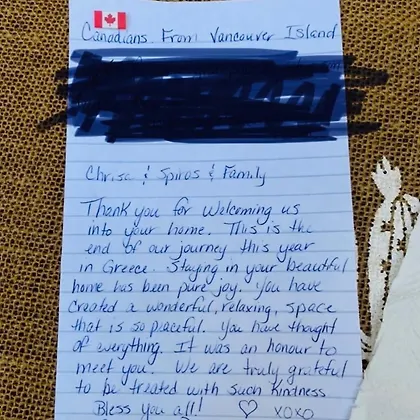 Canadians From Vancouver Island
Chrisa & Spiros & Family
Thank you for welcoming us
into your home. This is the
end of our journey this year
in Greece. Staying in your beautiful
home has been pure joy. You have
created a wonderful, relaxing, space
that is so peaceful. You have thought
of everything. It was an honour to
meet you. We are truly grateful
to be treated with such kindness
Bless you all! ♡ xoxo